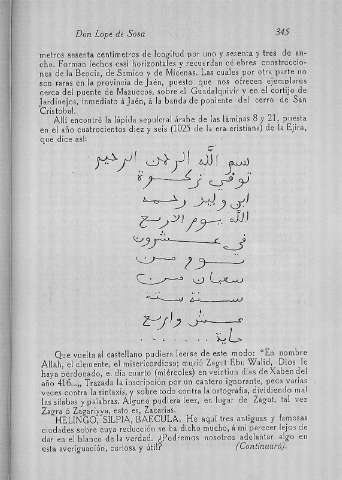 Don Lope de Sosa 345
metros sesenta centímetros de longitud por uno y sesenta y tres de an-
cho. Forman lechos casi horizontales y recuerdan célebres construccio-
nes de la Beocia, de Samico y de Micenas. Las cuales por otra parte no
son raras en la provincia de Jaén, puesto que nos ofrecen ejemplares
cerca del puente de Mazuecos, sobre el Guadalquivir y en el cortijo de
Jardinejos, inmediato á Jaén, á la banda de poniente del cerro de San
Cristóbal.
Allí encontré la lápida sepulcral árabe de las láminas 8 y 21, puesta
en el año cuatrocientos diez y seis (1025 de la era cristiana) de la Ejira,
que dice así:
بسم الله الرحمن الرحيم
توفي زكوة
ابن وليد رحمه
الله يوم الاربع
في عشرون
يوم من
شعبان من
سنة سته
عشر واربع
ماية . . . . . . .
Que vuelta al castellano pudiera leerse de este modo: "En nombre
Allah, el clemente, el misericordioso; murió Zagut Ebu Walid, Dios le
haya perdonado, el día cuarto (miércoles) en veintiun días de Xaben del
año 416..., Trazada la inscripción por un cantero ignorante, peca varias
veces contra la sintaxis, y sobre todo contra la ortografía, dividiendo mal
las sílabas y palabras. Alguno pudiera leer, en lugar de Zagut, tal vez
Zagra ó Zagariyya, esto es, Zacarías.
HELINGO, SILPIA, BAECULA. He aquí tres antiguas y famosas
ciudades sobre cuya reducción se ha dicho mucho, á mi parecer lejos de
dar en el blanco de la verdad. ¿Podremos nosotros adelantar algo en
esta averiguación, curiosa y útil? (Continuará).